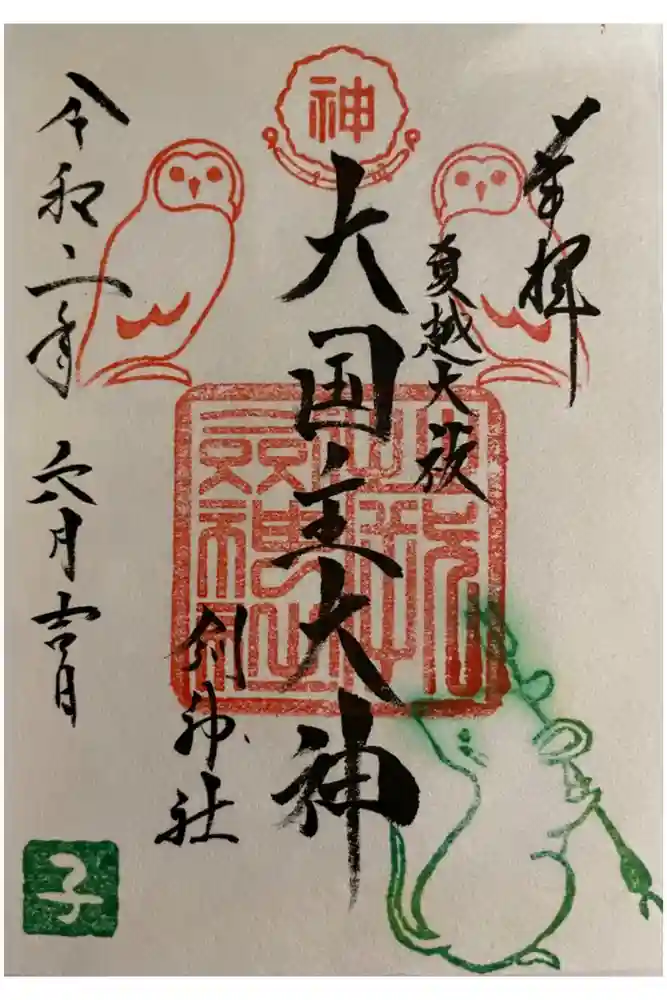 奉拝
夏越大祓
神
大国主大神
剣神社
令和二年
六月吉日
子